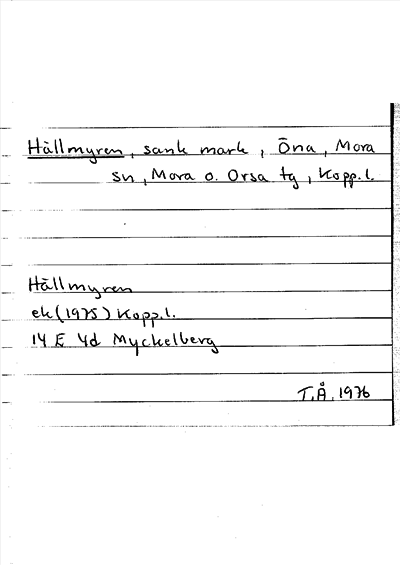 Hållmyren, sank mark, Öna, Mora
sn, Mora o. Orsa tg, Kopp.l.
Hållmyren
ek (1975) Kopp.l.
14 E 4d Myckelberg
T.Å. 1976